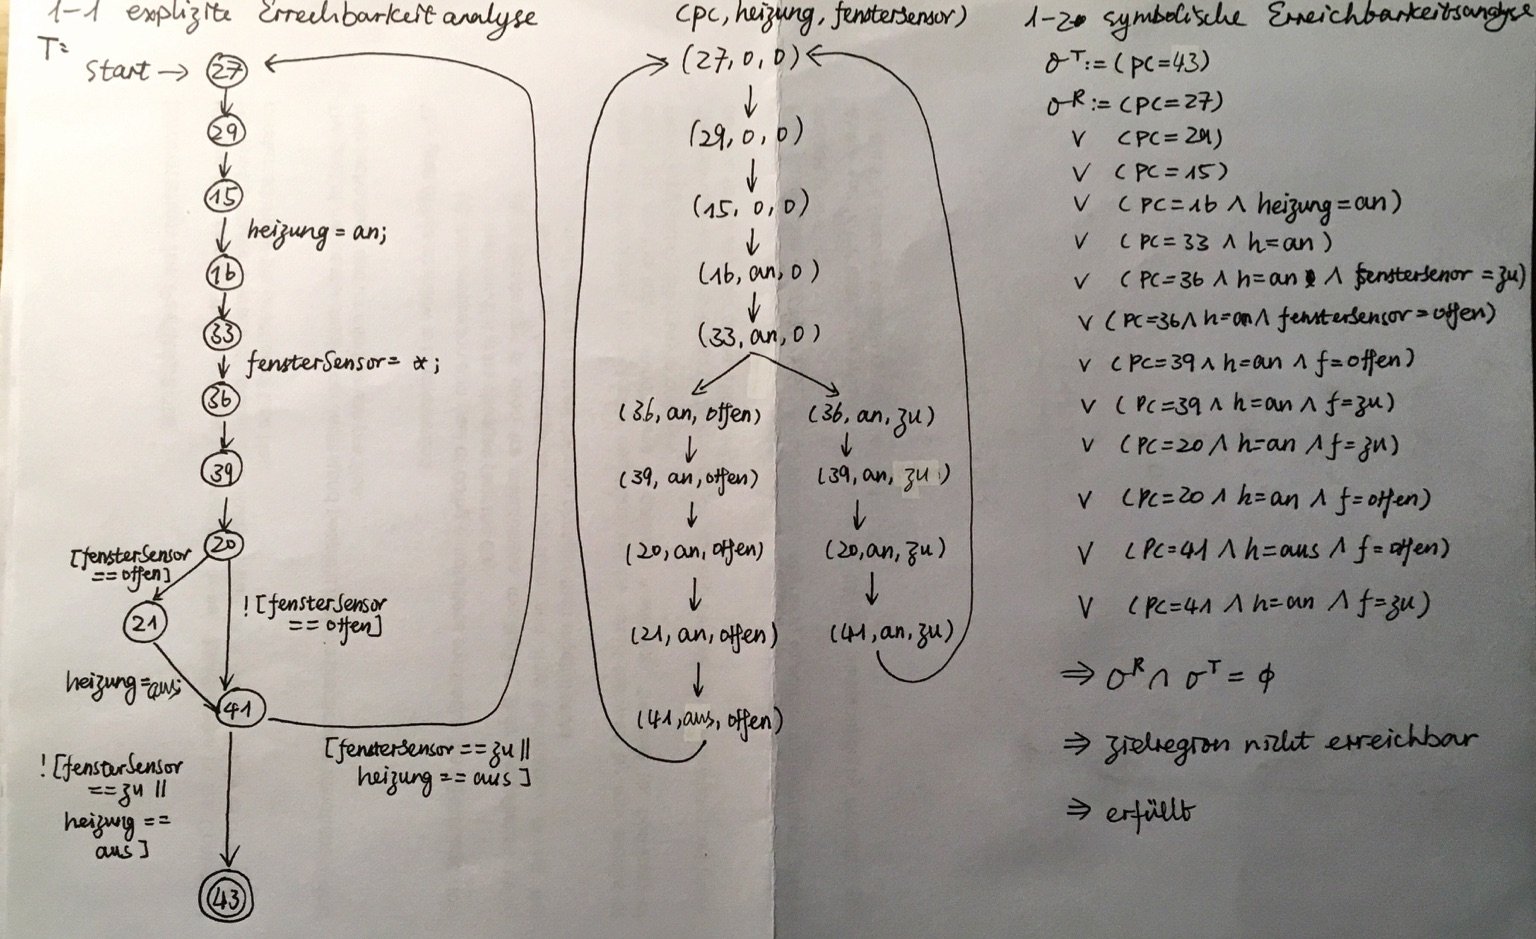 1-1 explizite Erreichbarkeit analyse
T:
Start →
27
29
15
heizung = an;
16
33
fensterSensor = *;
36
39
20
[fensterSensor
== offen]
21
! [fensterSensor
== offen]
heizung=aus;
41
[fensterSensor == zu ||
heizung == aus]
! [fensterSensor
== zu ||
heizung ==
aus]
43
(pc, heizung, fenstersensor)
(27, 0, 0)
(29, 0, 0)
(15, 0, 0)
(16, an, 0)
(33, an, 0)
(36, an, offen) (36, an, zu)
(39, an, offen) (39, an, zu)
(20, an, offen) (20, an, zu)
(21, an, offen) (41, an, zu)
(41, aus, offen)
1-2 symbolische Erreichbarkeitsanalyse
σᵀ := (pc=43)
σᴿ := (pc=27)
∨ (pc=29)
∨ (pc=15)
∨ (pc=16 ∧ heizung=an)
∨ (pc=33 ∧ h=an)
∨ (pc=36 ∧ h=an ∧ fenstersenor = zu)
∨ (pc=36 ∧ h=an ∧ fenstersensor=offen)
∨ (pc=39 ∧ h=an ∧ f=offen)
∨ (pc=39 ∧ h=an ∧ f=zu)
∨ (pc=20 ∧ h=an ∧ f=zu)
∨ (pc=20 ∧ h=an ∧ f=offen)
∨ (pc=41 ∧ h=aus ∧ f=offen)
∨ (pc=41 ∧ h=an ∧ f=zu)
⇒ σᴿ ∧ σᵀ = ϕ
⇒ zielregion nicht erreichbar
⇒ erfüllt